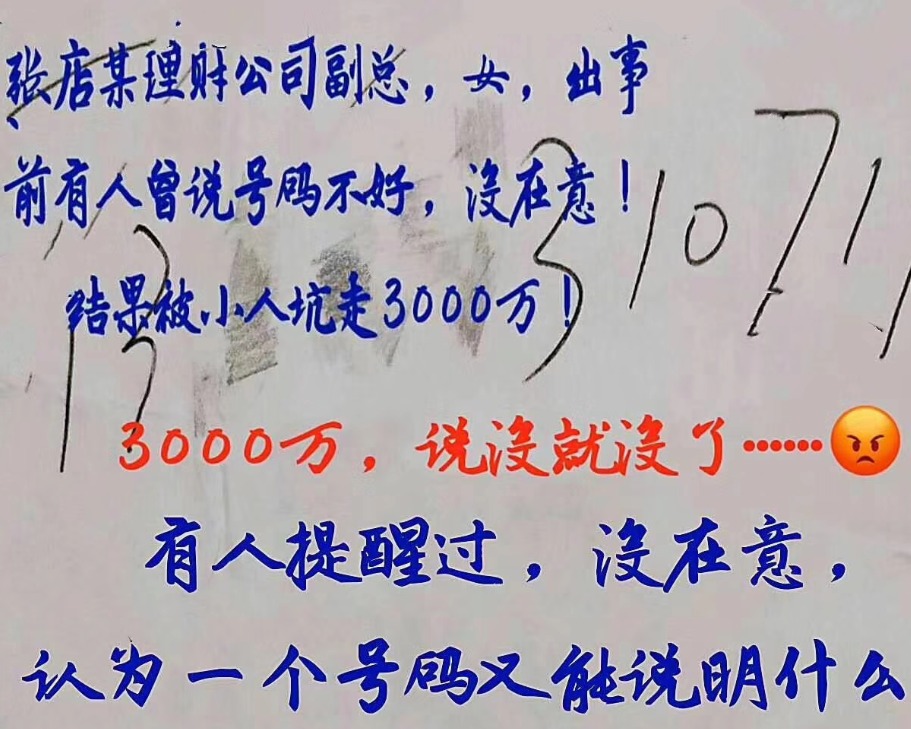 张店某理财公司副总，女，出事
前有人曾说号码不好，没在意！
结果被小人坑走3000万！
13 310711
3000万，说没就没了……😡
有人提醒过，没在意，
认为一个号码又能说明什么